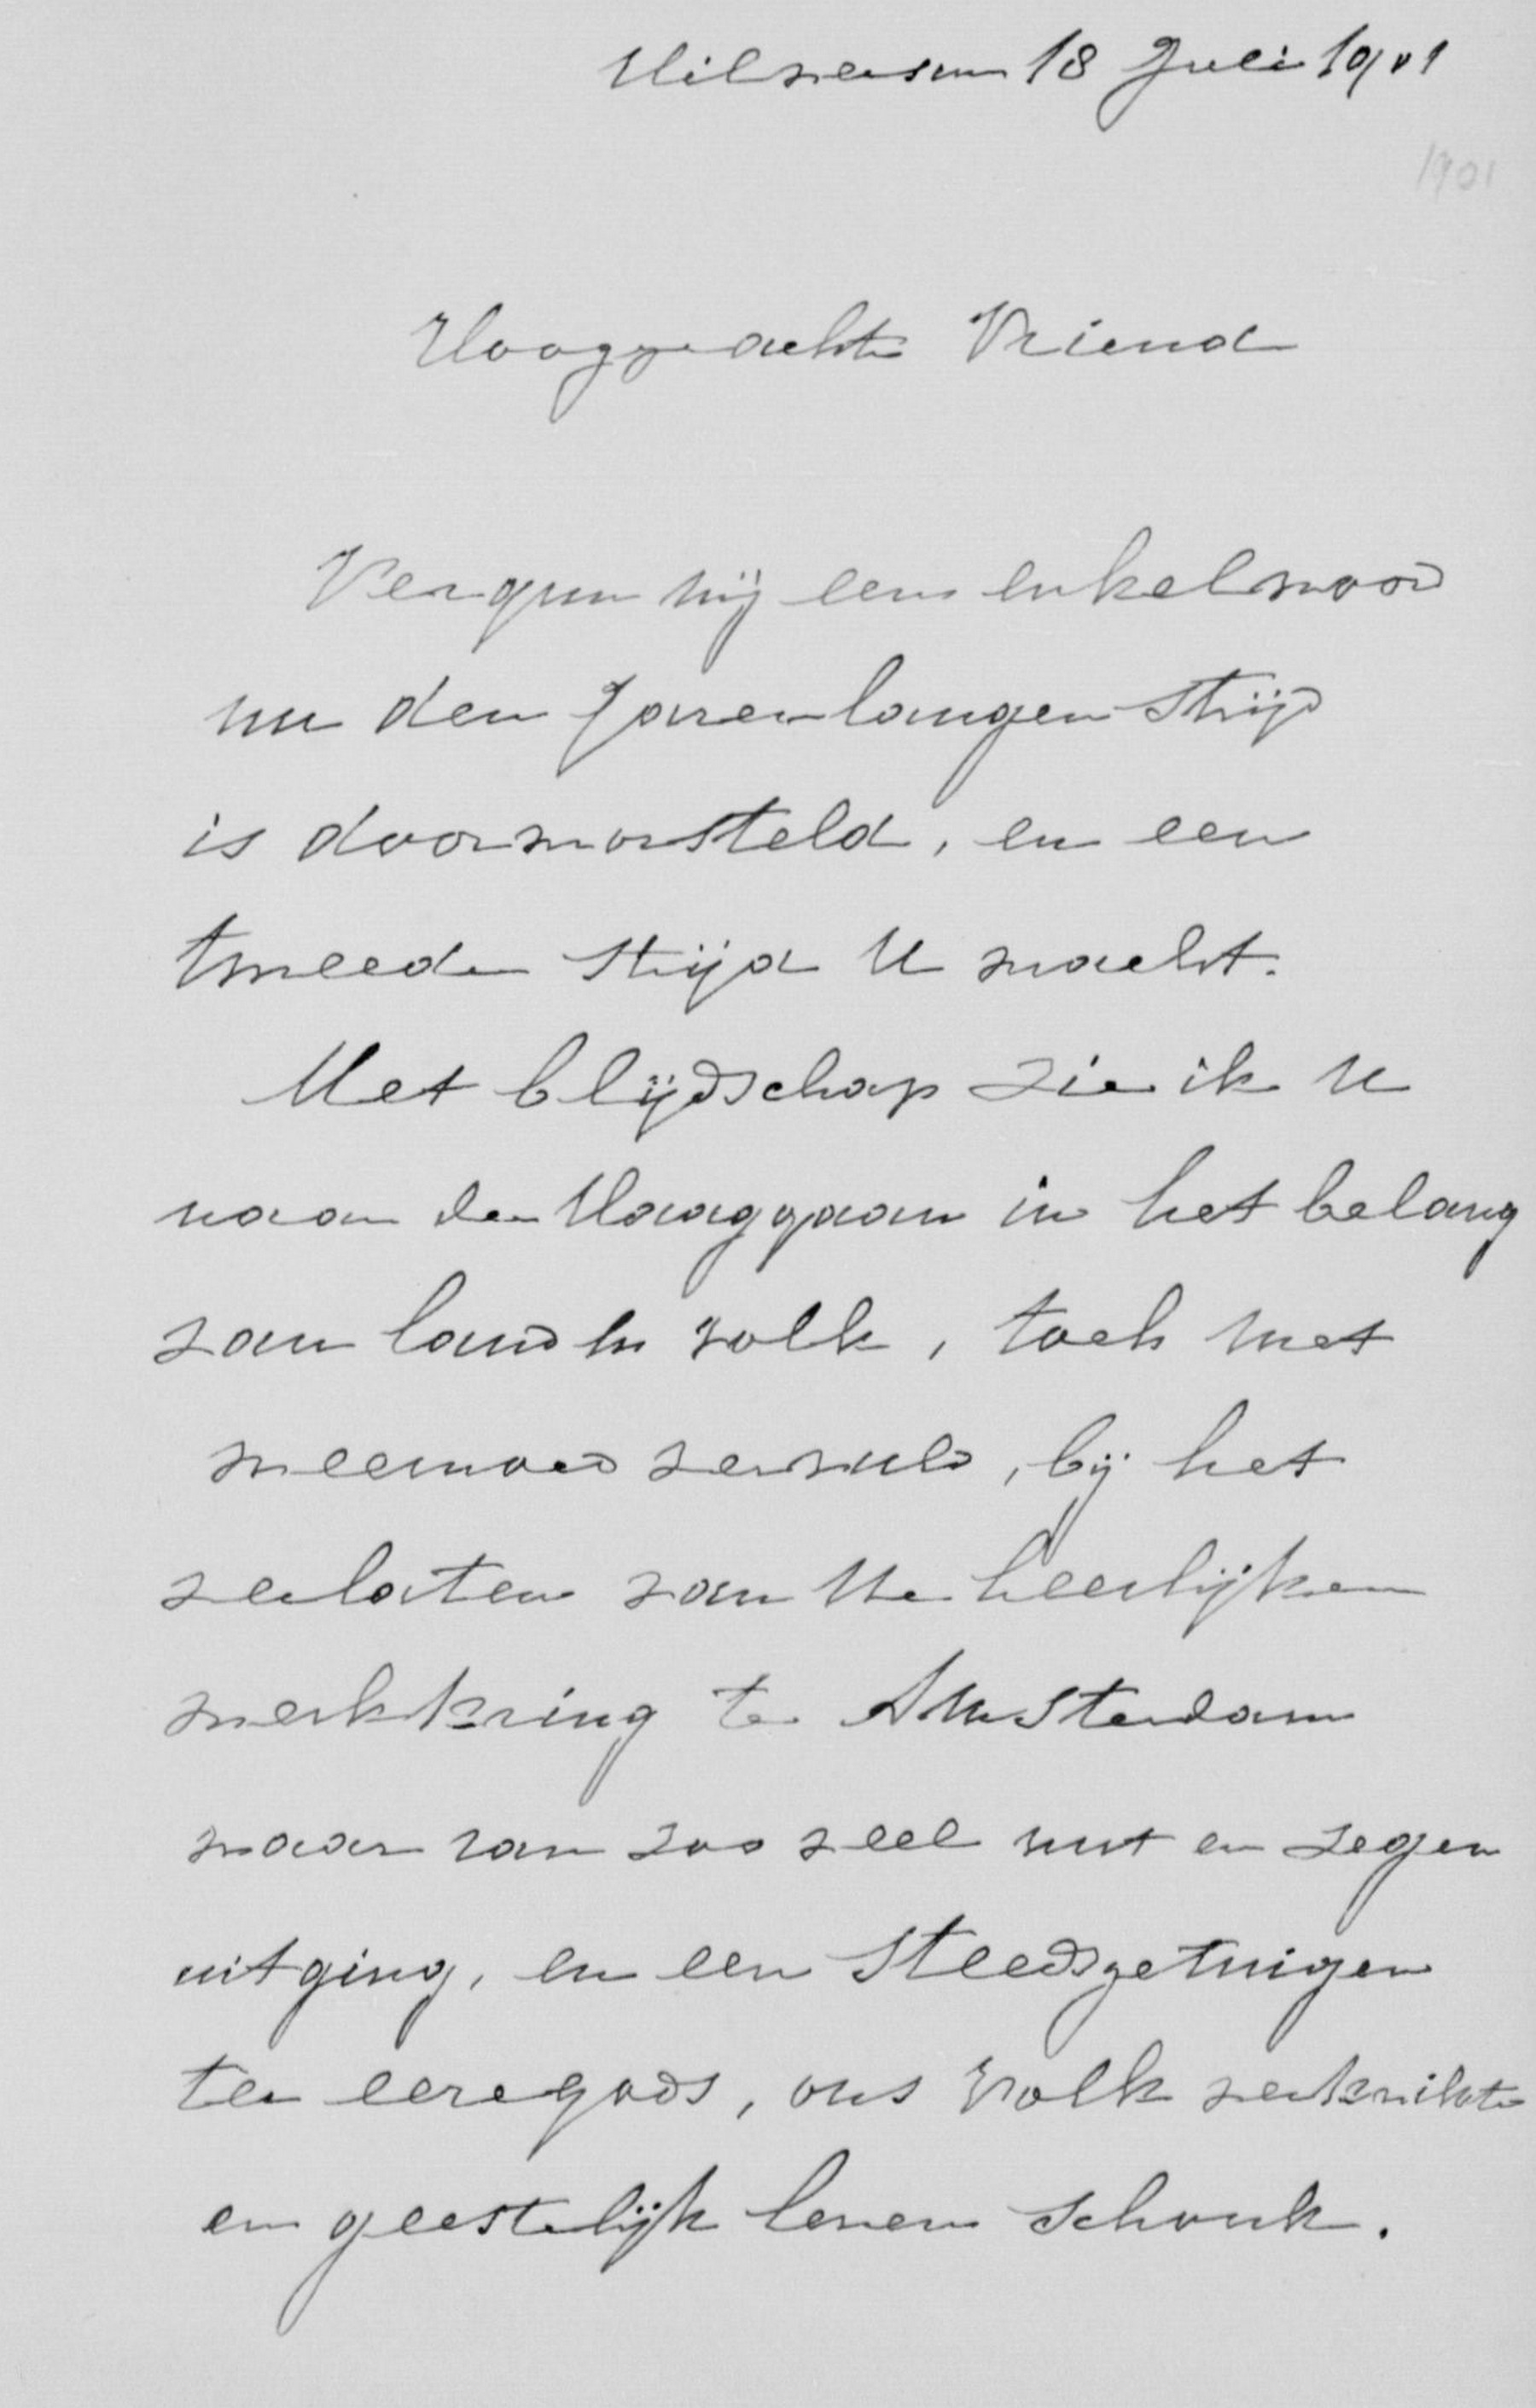 Hilversum 18 Juli 1901
1901
Hooggeachte Vriend
Vergun mij een enkel woord
nu den jarenlangen strijd
is doorworsteld, en een
tweede strijd U wacht.
Met blijdschap zie ik U
naar den Haag gaan in het belang
van land en volk, toch met
weemoed vervuld, bij het
verlaten van Uw heerlijken
werkkring te Amsterdam
waar van zoo veel nut en zegen
uitging, en een steeds getuigen
ter eere gods, ons volk verkwikte
en geestelijk leven schonk.